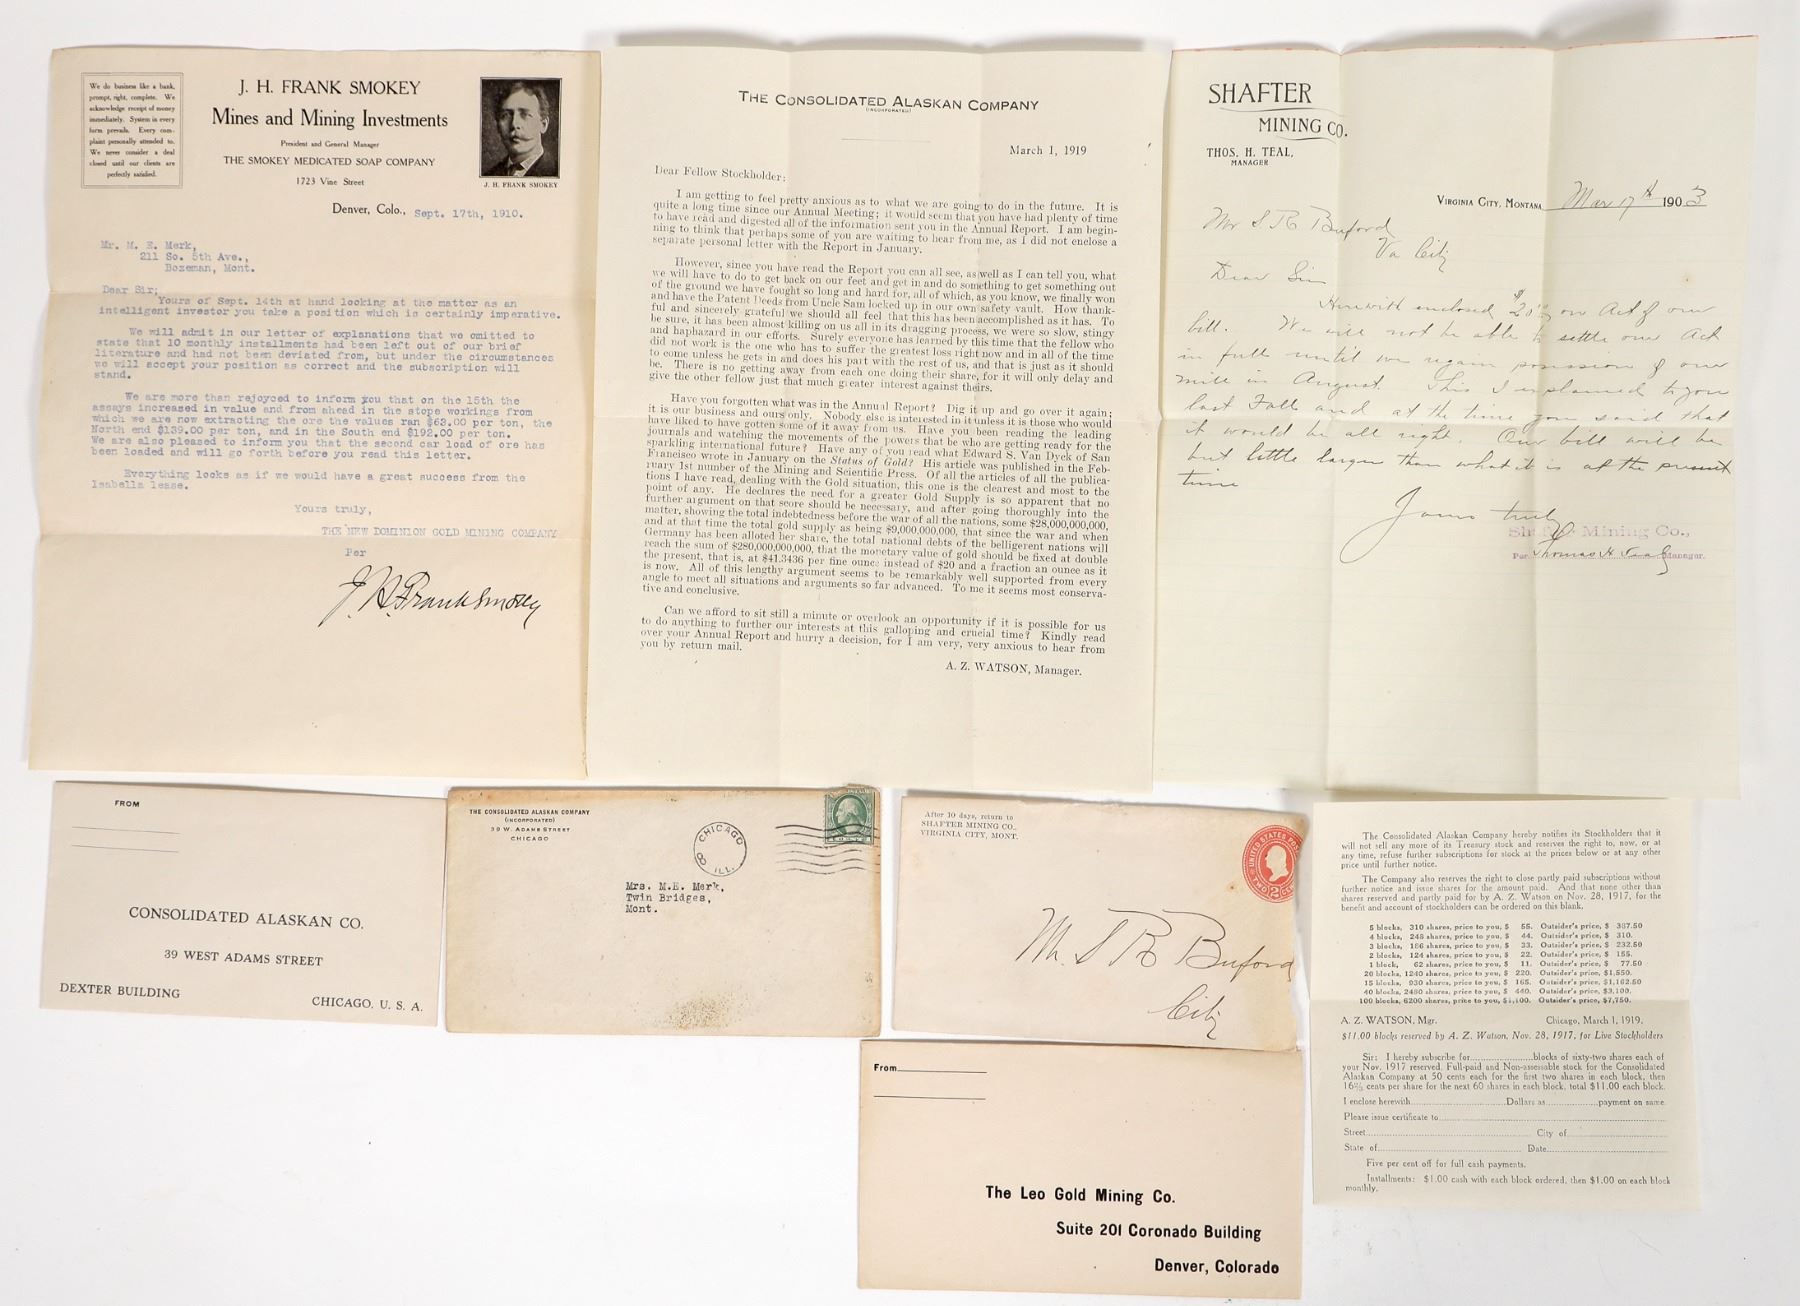 We do business like a bank,
prompt, right, complete. We
acknowledge receipt of money
immediately. System in every
form prevails. Every com-
plaint personally attended to.
We never consider a deal
closed until our clients are
perfectly satisfied.
J. H. FRANK SMOKEY
Mines and Mining Investments
President and General Manager
THE SMOKEY MEDICATED SOAP COMPANY
1723 Vine Street
J. H. FRANK SMOKEY
Denver, Colo., Sept. 17th, 1910.
Mr. M. E. Merk,
211 So. 5th Ave.,
Bozeman, Mont.
Dear Sir;
Yours of Sept. 14th at hand looking at the mattor as an
intelligent investor you take a position which is certainly imperative.
We will admit in our letter of explanations that we omitted to
state that 10 monthly installments had been left out of our brief
literature and had not been deviated from, but under the circumstances
we will accept your position as correct and the subscription will
stand.
We are more than rejoyced to inform you that on the 15th the
assays increased in value and from ahead in the stope workings from
which we are now extracting the ore the values ran $63.00 per ton, the
North end $139.00 per ton, and in the South end $192.00 per ton.
We are also pleased to inform you that the second car load of ore has
been loaded and will go forth before you read this letter.
Everything looks as if we would have a great success from the
Isabella lease.
Yours truly,
THE NEW DOMINION GOLD MINING COMPANY
Per
J. H. Frank Smokey
THE CONSOLIDATED ALASKAN COMPANY
(INCORPORATED)
March 1, 1919
Dear Fellow Stockholder:
I am getting to feel pretty anxious as to what we are going to do in the future. It is
quite a long time since our Annual Meeting; it would seem that you have had plenty of time
to have read and digested all of the information sent you in the Annual Report. I am begin-
ning to think that perhaps some of you are waiting to hear from me, as I did not enclose a
separate personal letter with the Report in January.
However, since you have read the Report you can all see, as well as I can tell you, what
we will have to do to get back on our feet and get in and do something to get something out
of the ground we have fought so long and hard for, all of which, as you know, we finally won
and have the Patent Deeds from Uncle Sam locked up in our own safety vault. How thank-
ful and sincerely grateful we should all feel that this has been accomplished as it has. To
be sure, it has been almost killing on us all in its dragging process, we were so slow, stingy
and haphazard in our efforts. Surely everyone has learned by this time that the fellow who
did not work is the one who has to suffer the greatest loss right now and in all of the time
to come unless he gets in and does his part with the rest of us, and that is just as it should
be. There is no getting away from each one doing their share, for it will only delay and
give the other fellow just that much greater interest against theirs.
Have you forgotten what was in the Annual Report? Dig it up and go over it again;
it is our business and ours only. Nobody else is interested in it unless it is those who would
have liked to have gotten some of it away from us. Have you been reading the leading
journals and watching the movements of the powers that be who are getting ready for the
sparkling international future? Have any of you read what Edward S. Van Dyck of San
Francisco wrote in January on the Status of Gold? His article was published in the Feb-
ruary 1st number of the Mining and Scientific Press. Of all the articles of all the publica-
tions I have read, dealing with the Gold situation, this one is the clearest and most to the
point of any. He declares the need for a greater Gold Supply is so apparent that no
further argument on that score should be necessary, and after going thoroughly into the
matter, showing the total indebtedness before the war of all the nations, some $28,000,000,000,
and at that time the total gold supply as being $9,000,000,000, that since the war and when
Germany has been alloted her share, the total national debts of the belligerent nations will
reach the sum of $280,000,000,000, that the monetary value of gold should be fixed at double
the present, that is, at $41.3436 per fine ounce instead of $20 and a fraction an ounce as it
is now. All of this lengthy argument seems to be remarkably well supported from every
angle to meet all situations and arguments so far advanced. To me it seems most conserva-
tive and conclusive.
Can we afford to sit still a minute or overlook an opportunity if it is possible for us
to do anything to further our interests at this galloping and crucial time? Kindly read
over your Annual Report and hurry a decision, for I am very, very anxious to hear from
you by return mail.
A. Z. WATSON, Manager.
SHAFTER
MINING CO.
THOS. H. TEAL,
MANAGER
VIRGINIA CITY, MONTANA, Mar 17th 1903
Mr S R Buford
Va City
Dear Sir
Herewith enclosed $20.00 on Act of our
bill. We will not be able to settle our Act
in full until we regain possession of our
mill in August. This I explained to you
last Fall and at the time you said that
it would be all right. Our bill will be
but little larger than what it is at the present
time
Yours truly
Shafter Mining Co.,
Per Thomas H Teal Manager.
FROM
CONSOLIDATED ALASKAN CO.
39 WEST ADAMS STREET
DEXTER BUILDING
CHICAGO, U. S. A.
THE CONSOLIDATED ALASKAN COMPANY
(INCORPORATED)
39 W. ADAMS STREET
CHICAGO
CHICAGO
ILL.
Mrs. M.E. Merk,
Twin Bridges,
Mont.
After 10 days, return to
SHAFTER MINING CO.,
VIRGINIA CITY, MONT.
UNITED STATES POS
TWO 2 CE
Mr. S R Buford
City
From
The Leo Gold Mining Co.
Suite 201 Coronado Building
Denver, Colorado
The Consolidated Alaskan Company hereby notifies its Stockholders that it
will not sell any more of its Treasury stock and reserves the right to, now, or at
any time, refuse further subscriptions for stock at the prices below or at any other
price until further notice.
The Company also reserves the right to close partly paid subscriptions without
further notice and issue shares for the amount paid. And that none other than
shares reserved and partly paid for by A. Z. Watson on Nov. 28, 1917, for the
benefit and account of stockholders can be ordered on this blank.
5 blocks, 310 shares, price to you, $ 55. Outsider's price, $ 387.50
4 blocks, 248 shares, price to you, $ 44. Outsider's price, $ 310.
3 blocks, 186 shares, price to you, $ 33. Outsider's price, $ 232.50
2 blocks, 124 shares, price to you, $ 22. Outsider's price, $ 155.
1 block, 62 shares, price to you, $ 11. Outsider's price, $ 77.50
20 blocks, 1240 shares, price to you, $ 220. Outsider's price, $1,550.
15 blocks, 930 shares, price to you, $ 165. Outsider's price, $1,162.50
40 blocks, 2480 shares, price to you, $ 440. Outsider's price, $3,100.
100 blocks, 6200 shares, price to you, $1,100. Outsider's price, $7,750.
A. Z. WATSON, Mgr. Chicago, March 1, 1919.
$11.00 blocks reserved by A. Z. Watson, Nov. 28, 1917, for Live Stockholders
Sir: I hereby subscribe for blocks of sixty-two shares each of
your Nov. 1917 reserved, Full-paid and Non-assessable stock for the Consolidated
Alaskan Company at 50 cents each for the first two shares in each block, then
16⅔ cents per share for the next 60 shares in each block, total $11.00 each block.
I enclose herewith Dollars as payment on same.
Please issue certificate to
Street City of
State of Date
Five per cent off for full cash payments.
Installments: $1.00 cash with each block ordered, then $1.00 on each block
monthly.